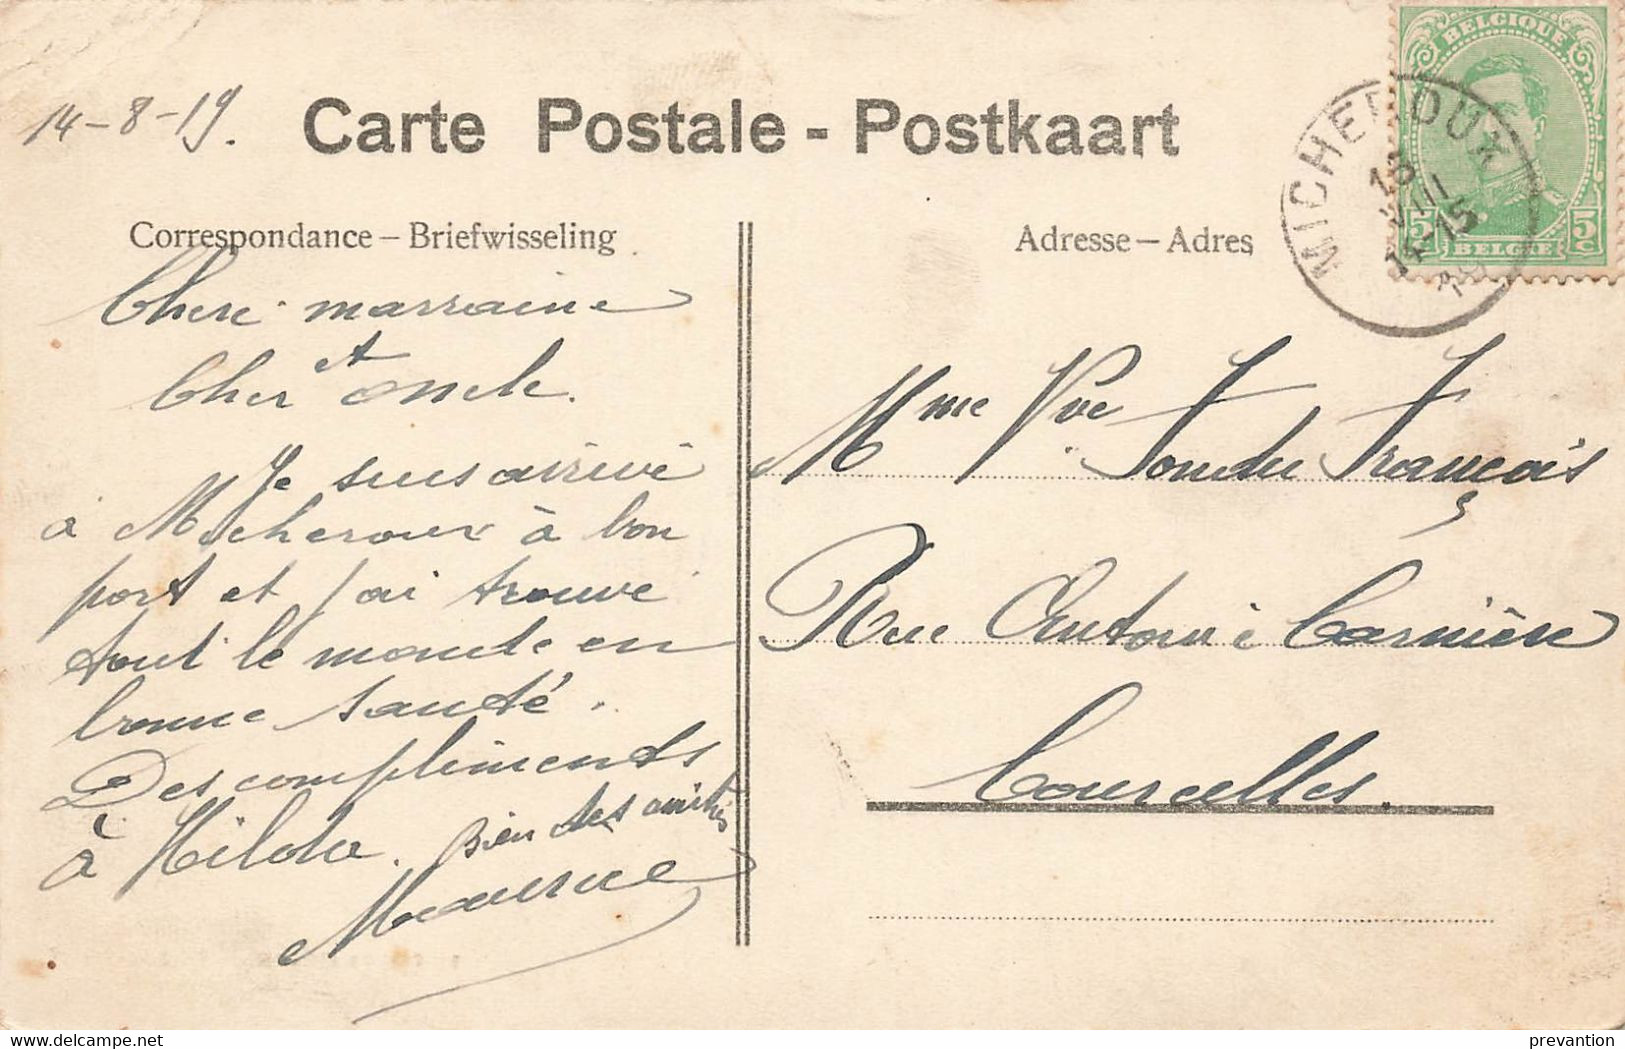 14-8-19.
Carte Postale - Postkaart
BELGIQUE
5c 5c
BELGIË
MICHEROUX
14-15
Correspondance – Briefwisseling
Adresse – Adres
Chere marraine
et
Cher oncle.
Je suis arrivé
a Micheroux à bon
port et j'ai trouvé
tout le monde en
bonne santé.
Des compliments
à Hilda. Bien des amitiés
Maurice
Mme Vve Tondu François
Rue Antoine Carnière
Courcelles.
delcampe.net
prevantion